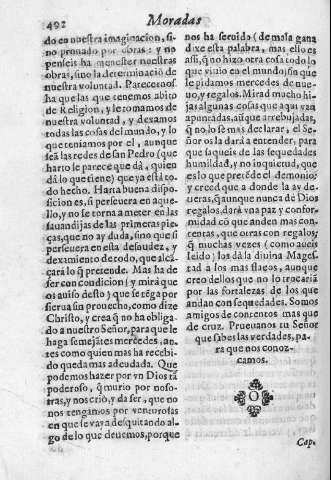 492
Moradas
do en nuestra imaginacion, si-
no prouado por obras: y no
penseis ha menester nuestras
obras, sino la determinaciō de
nuestra voluntad. Parecernos
ha que las que tenemos abito
de Religion, y le tomamos de
nuestra voluntad, y dexamos
todas las cosas del mundo, y lo
que teniamos por el, aunque
sea las redes de san Pedro (que
harto le parece que dà, quien
dà lo que tiene) que ya està to-
do hecho. Harta buena dispo-
sicion es, si perseuera en aque-
llo, y no se torna a meter en las
sauandijas de las primeras pie-
ças, que no ay duda, sino que si
perseuera en esta desnudez, y
dexamiento de todo, que alcā-
çarà lo q̄ pretende. Mas ha de
ser con condicion (y mirà que
os auiso desto) que se tẽga por
sierua sin prouecho, como dize
Christo, y crea q̄ no ha obliga-
do a nuestro Señor, para que le
haga semejātes mercedes, an-
tes como quien mas ha recebi-
do queda mas adeudada. Que
podemos hazer por vn Dios tā
poderoso, q̄ murio por noso-
tras, y nos criò, y da ser, que no
nos tengamos por venturosas
en que se vaya desquitando al-
go de lo que deuemos, porque
nos ha seruido (de mala gana
dixe esta palabra, mas ello es
assi, q̄ no hizo otra cosa todo lo
que viuio en el mundo) sin que
le pidamos mercedes de nue-
uo, y regalos. Mirad mucho hi-
jas algunas cosas que aqui van
apuntadas, aūque arrebujadas,
q̄ no lo sè mas declarar, el Se-
ñor os la darà a entender, para
que saqueis de las sequedades
humildad, y no inquietud, que
es lo que pretẽde el demonio;
y creed que a donde la ay de
ueras, q̄ aunque nunca dè Dios
regalos, darà vna paz y confor-
midad cō que anden mas con-
tentas, que otras con regalos;
q̄ muchas vezes (como aueis
leido) los dà la diuina Mages-
tad a los mas flacos, aunque
creo dellos que no lo trocariā
por las fortalezas de los que
andan con sequedades. Somos
amigos de contentos mas que
de cruz. Prueuanos tu Señor
que sabes las verdades, pa-
ra que nos conoz-
camos.
Cap.